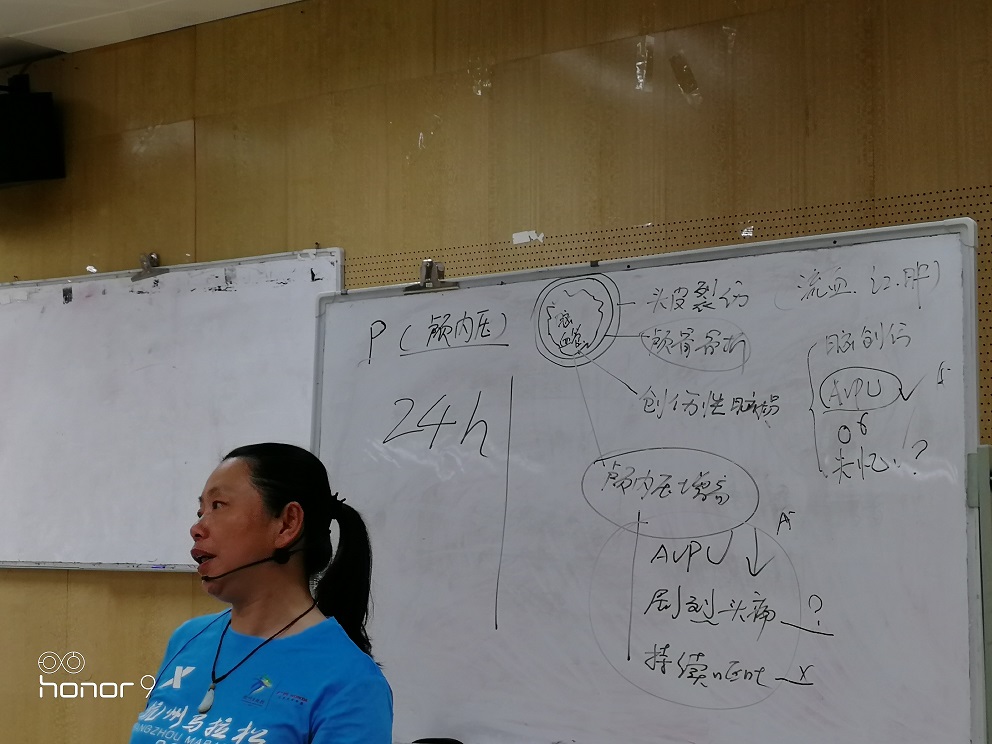 P (颅内压)
24h
脑
血管
头皮裂伤 (流血.红.肿)
颅骨骨折
创伤性脑损
脑创伤
AVPU ✓ A
失忆 ?
颅内压增高
A
AVPU ↓
剧烈头痛 ?
持续呕吐 x
honor 9
杭州马拉松